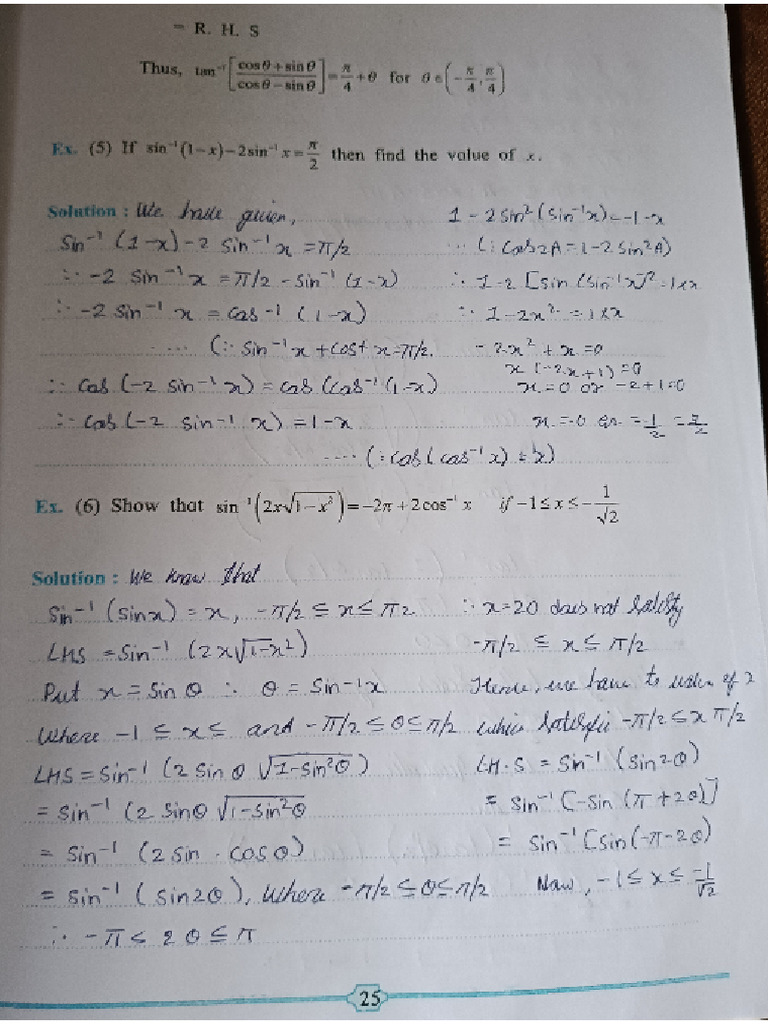 = R. H. S
Thus, tan⁻¹[(cosθ+sinθ)/(cosθ−sinθ)] = π/4 + θ for θ ∈ (−π/4, π/4)
Ex. (5) If sin⁻¹(1−x)−2sin⁻¹x = π/2 then find the value of x.
Solution : We have given,
Sin⁻¹ (1−x)−2 Sin⁻¹x = π/2
∴ −2 Sin⁻¹x = π/2 − sin⁻¹ (1−x)
∴ −2 sin⁻¹ x = cos⁻¹ (1−x)
.... (∵ sin⁻¹x + cos⁻¹ x = π/2.
∴ cos (−2 sin⁻¹ x) = cos (cos⁻¹ (1−x)
∴ cos (−2 sin⁻¹ x) = 1−x
.... (∵ cos (cos⁻¹ x) = x)
1 − 2 sin² (sin⁻¹x) = 1−x
... (∵ cos2A = 1−2 sin²A)
∴ 1−2 [sin (sin⁻¹x)]² = 1−x
∴ 1−2x² = 1−x
−2x² + x = 0
x (−2x+1) = 0
x = 0 or −2+1 = 0
x = 0 or = 1/2
Ex. (6) Show that sin⁻¹(2x√1−x²) = −2π + 2cos⁻¹ x if −1 ≤ x ≤ −1/√2
Solution : We know that
Sin⁻¹ (sinx) = x, −π/2 ≤ x ≤ π2
LHS = Sin⁻¹ (2x√1−x²)
Put x = Sin θ ∴ θ = Sin⁻¹x
Where −1 ≤ x ≤ and −π/2 ≤ θ ≤ π/2
LHS = Sin⁻¹ (2 Sin θ √1−Sin²θ)
= Sin⁻¹ (2 Sinθ √1−sin²θ
= Sin⁻¹ (2 sin . cos θ)
= Sin⁻¹ (sin2θ), Where −π/2 ≤ θ ≤ π/2
∴ −π ≤ 2θ ≤ π
∴ x=2θ does not Satisfy
−π/2 ≤ x ≤ π/2
Hence, we have to of
Satisfie −π/2 ≤ x π/2
LH.S = Sin⁻¹ (sin2θ)
= Sin⁻¹ [−sin (π + 2θ)]
= sin⁻¹ [sin(−π−2θ)
Now, −1 ≤ x ≤ −1/√2
25